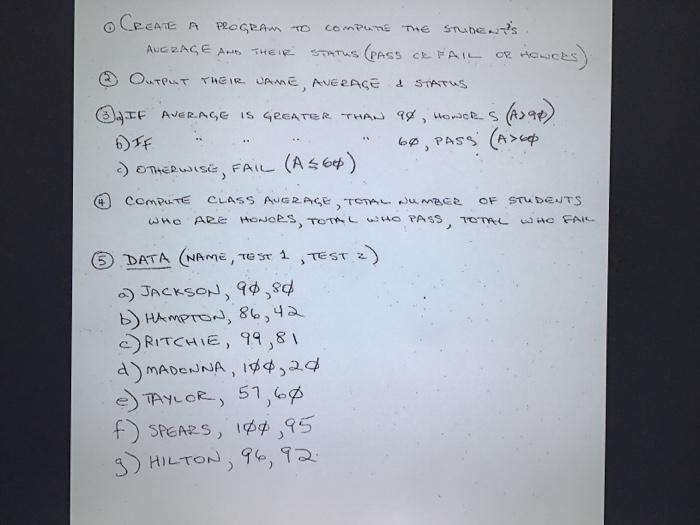 ① CREATE A PROGRAM TO COMPUTE THE STUDENT'S
AVERAGE AND THEIR STATUS (PASS OR FAIL OR HONORS)
② OUTPUT THEIR NAME, AVERAGE & STATUS
③ a) IF AVERAGE IS GREATER THAN 90, HONORS (A>90)
b) IF " " " " 60, PASS (A>60
c) OTHERWISE, FAIL (A≤60)
④ COMPUTE CLASS AVERAGE, TOTAL NUMBER OF STUDENTS
WHO ARE HONORS, TOTAL WHO PASS, TOTAL WHO FAIL
⑤ DATA (NAME, TEST 1, TEST 2)
a) JACKSON, 90, 80
b) HAMPTON, 86, 42
c) RITCHIE, 99, 81
d) MADONNA, 100, 20
e) TAYLOR, 57, 60
f) SPEARS, 100, 95
g) HILTON, 96, 92